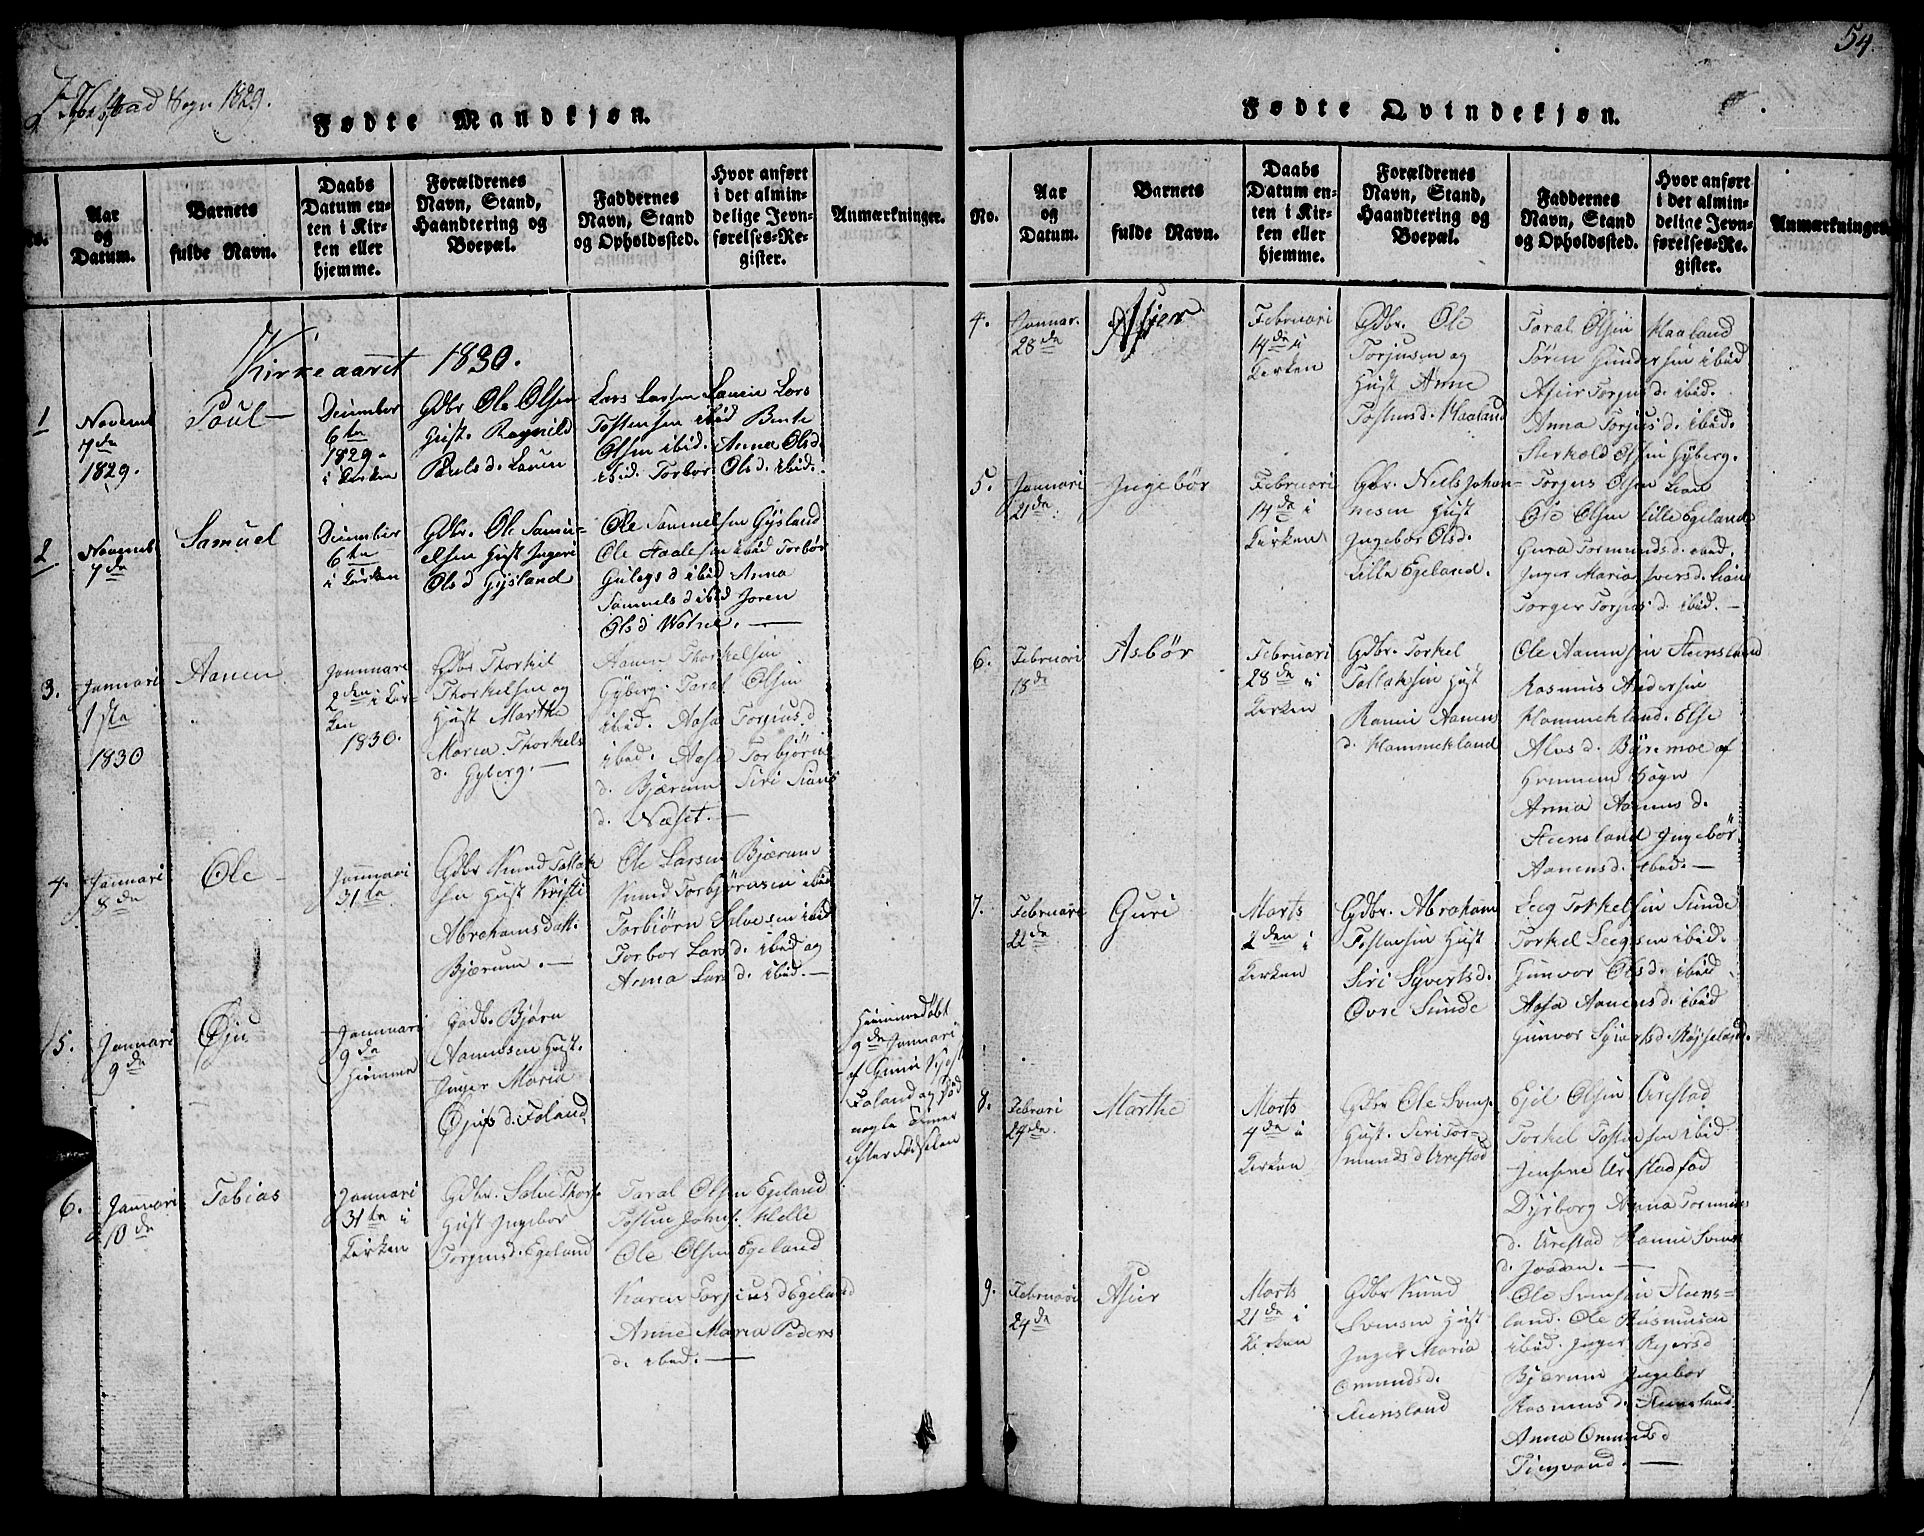 Sogn 1829.
Fødte Mandkjøn.
No.
Aar
og
Datum.
Barnets
fulde Navn.
Daabs
Datum en-
ten i Kir-
ken eller
hjemme.
Forældrenes
Navn, Stand,
Haandtering og
Boepæl.
Faddernes
Navn, Stand
og Opholdssted.
Hvor anført
i det almin-
delige Jevn-
førelses-Re-
gister.
Anmærkninger.
Kirkeaaret 1830.
1
Novemb
7de
1829.
Poul
December
6te
1829.
i Kirken
Gdbr Ole Olsen
Hust. Ragnild
Pouls d. Lauen
Lars Larsen Lauen Lars
Tostensen ibid Bente
Olsen ibid. Anna Ols d.
ibid. Torbor Ols d. ibid.
2
Novemb
7de
Samuel
December
6te
i Kirken
Gdbr. Ole Samu-
elsen Hust Ingeri
Ols d Gysland
Ole Samuelsen Gysland
Ole Aadesen ibid Torbør
Gulegs d ibid Anna
Samuels d ibid Joren
Ols d Watne.
3.
Januari
1sta
1830
Aanen
Januari
2den i Kir-
ken
1830.
Gdbr Thorkil
Thorkelsen og
Hust Marthe
Maria Thorkels
d. Gyberg.
Aanen Thorkelsen
Gyberg. Taral Olsen
ibid. Aasa Torjus d
ibid. Aasa Torbjørns
d. Bjærum Siri
d. Næset.
4.
Januari
8de
Ole
Januari
31te
Gdbr Knud Tollak
sen Hust Kristi
Abrahamsdatt.
Bjærum.
Ole Larsen Bjærum
Knud Torbjørnsen ibid
Torbiørn Salvesen ibid
Torbor Lars d. ibid og
Anna Lars d. ibid.
5.
Januari
9de
Øju
Januari
9de
Hiemme
Gadb. Bjørn
Aanensen Hust.
Inger Maria
Øjufs d. Foland
Hiemmedøbt
9de Januari
af
Foland og død
nogle Timer
efter Fødselen
6.
Januari
10de
Tobias
Januari
31te i
Kirken
Gdbr. Salve Thors.
Hust Ingebor
Torjus d. Egeland
Taral Olsen Egeland
Tosten Johns. Helle
Ole Olsen Egeland
Karen Torjus d Egeland
Anne Maria Peders
d. ibid.
54.
Fødte Qvindekjøn.
No.
Aar
og
Datum.
Barnets
fulde Navn.
Daabs
Datum en-
ten i Kir-
ken eller
hjemme.
Forældrenes
Navn, Stand,
Haandtering og
Boepæl.
Faddernes
Navn, Stand
og Opholdssted.
Hvor anført
i det almin-
delige Jevn-
førelses-Re-
gister.
Anmærkninger.
4.
Januar.
28de
Asier
Februari
14de i
Kirken
Gdbr. Ole
Torjusen og
Hust Anne
Tostens d. Haaland
Taral Olsen Haaland
Søren Gundersen ibid
Asier Torjus d. ibid.
Anna Torjus d. ibid.
Sterkold Olsen Gyberg.
5.
Januari
21de
Ingebør
Februari
14de i
Kirken
Gdbr. Niels Johan-
nesen Hust
Ingebor Ols d.
Lille Egeland.
Torjus Olsen Lian
Ole Olsen Lille Egeland
Gura Tormunds d. ibid.
Inger Maria Ivers d. Lian
Torger Torjus d. ibid.
6.
Februari
18de
Asbør
Februari
28de i
Kirken
Gdbr. Torkel
Tollaksen Hust
Ranni Aanens
d. Hammekland
Ole Aanensen Steensland
Rasmus Andersen
Hammekland. Else
Alos d. Byremoe af
Sogn
Anna Aanens d.
Steensland Ingebør
Aanens d. ibid.
7.
Februari
22de
Guri
Marts
2den i
Kirken
Gdbr. Abraham
Tostensen Hust
Siri Syverts d.
Øvre Sunde
Seeg Torkelsen Sunde
Torkel Seegsen ibid.
Gunvor Ols d. ibid
Aasa Aanens d. ibid
Gunvor Syverts d. Røyseland.
8.
Februari
24de.
Marthe
Marts
4de i
Kirken
Gdbr Ole Svens.
Hust. Siri Tor-
munds d Urestad
Ejel Olsen Urestad
Torkel Tostensen ibid
Jensine Urestad fød
Dyrborg Anna Tormun
d. Urestad Hanne Svens
d. Jvaden.
9.
Februari
24de
Asier
Marts
21de i
Kirken
Gdbr Knud
Svensen Hust
Inger Maria
Omunds d.
Steensland
Ole Svensen Steens-
land. Ole Rasmusen
ibid. Inger Rejers d
Bjærum Ingebor
Rasmus d. Steensland
Anna Omunds d
Tingvand.